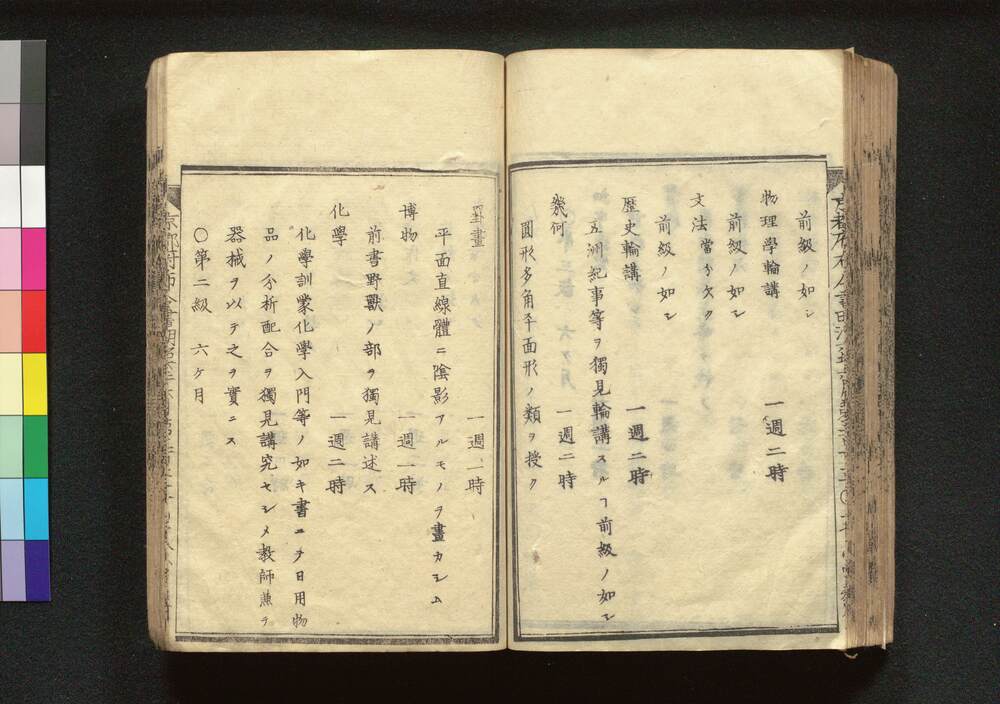 前級ノ如シ
物理學輪講 一週二時
前級ノ如シ
文法當分欠ク
前級ノ如シ
歴史輪講 一週二時
五洲紀事等ヲ獨見輪講スルヿ前級ノ如シ
幾何 一週二時
圓形多角平面形ノ類ヲ授ク
罫畫 一週一時
平面直線體ニ陰影アルモノヲ畫カシム
博物 一週一時
前書野獸ノ部ヲ獨見講述ス
化學 一週二時
化學訓蒙化學入門等ノ如キ書ニテ日用物
品ノ分析配合ヲ獨見講究セシメ教師兼テ
器械ヲ以テ之ヲ實ニス
〇第二級 六ケ月